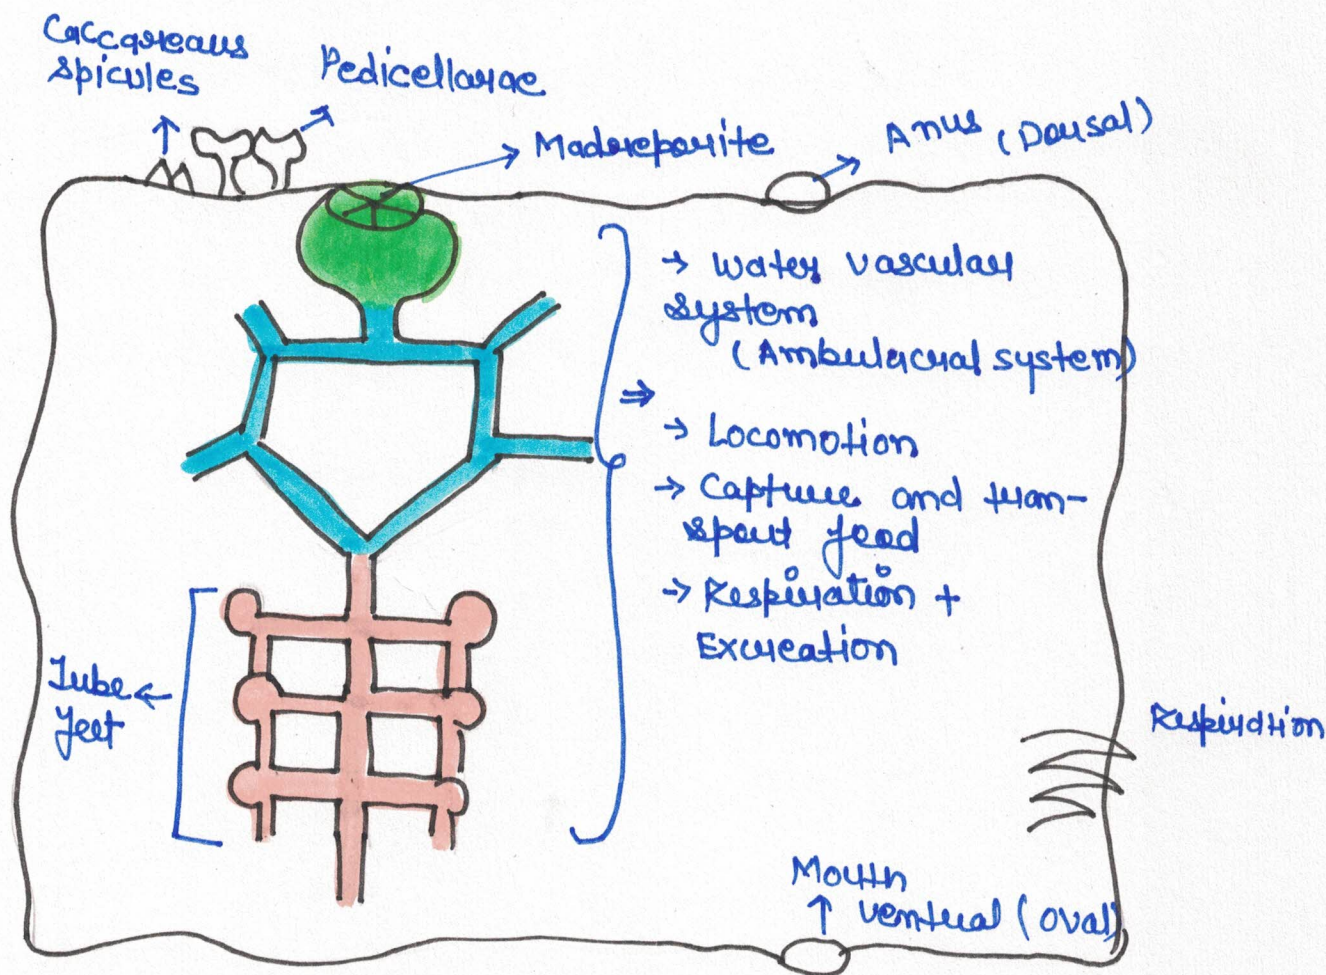 Caccareaus
Spicules
Pedicellarae
Madreporite
Anus (Dorsal)
→ Water vascular
system
(Ambulacral system)
⇒
→ Locomotion
→ Capture and tran-
sport food
→ Respiration +
Excreation
Tube
feet
Respiration
Mouth
ventral (oval)